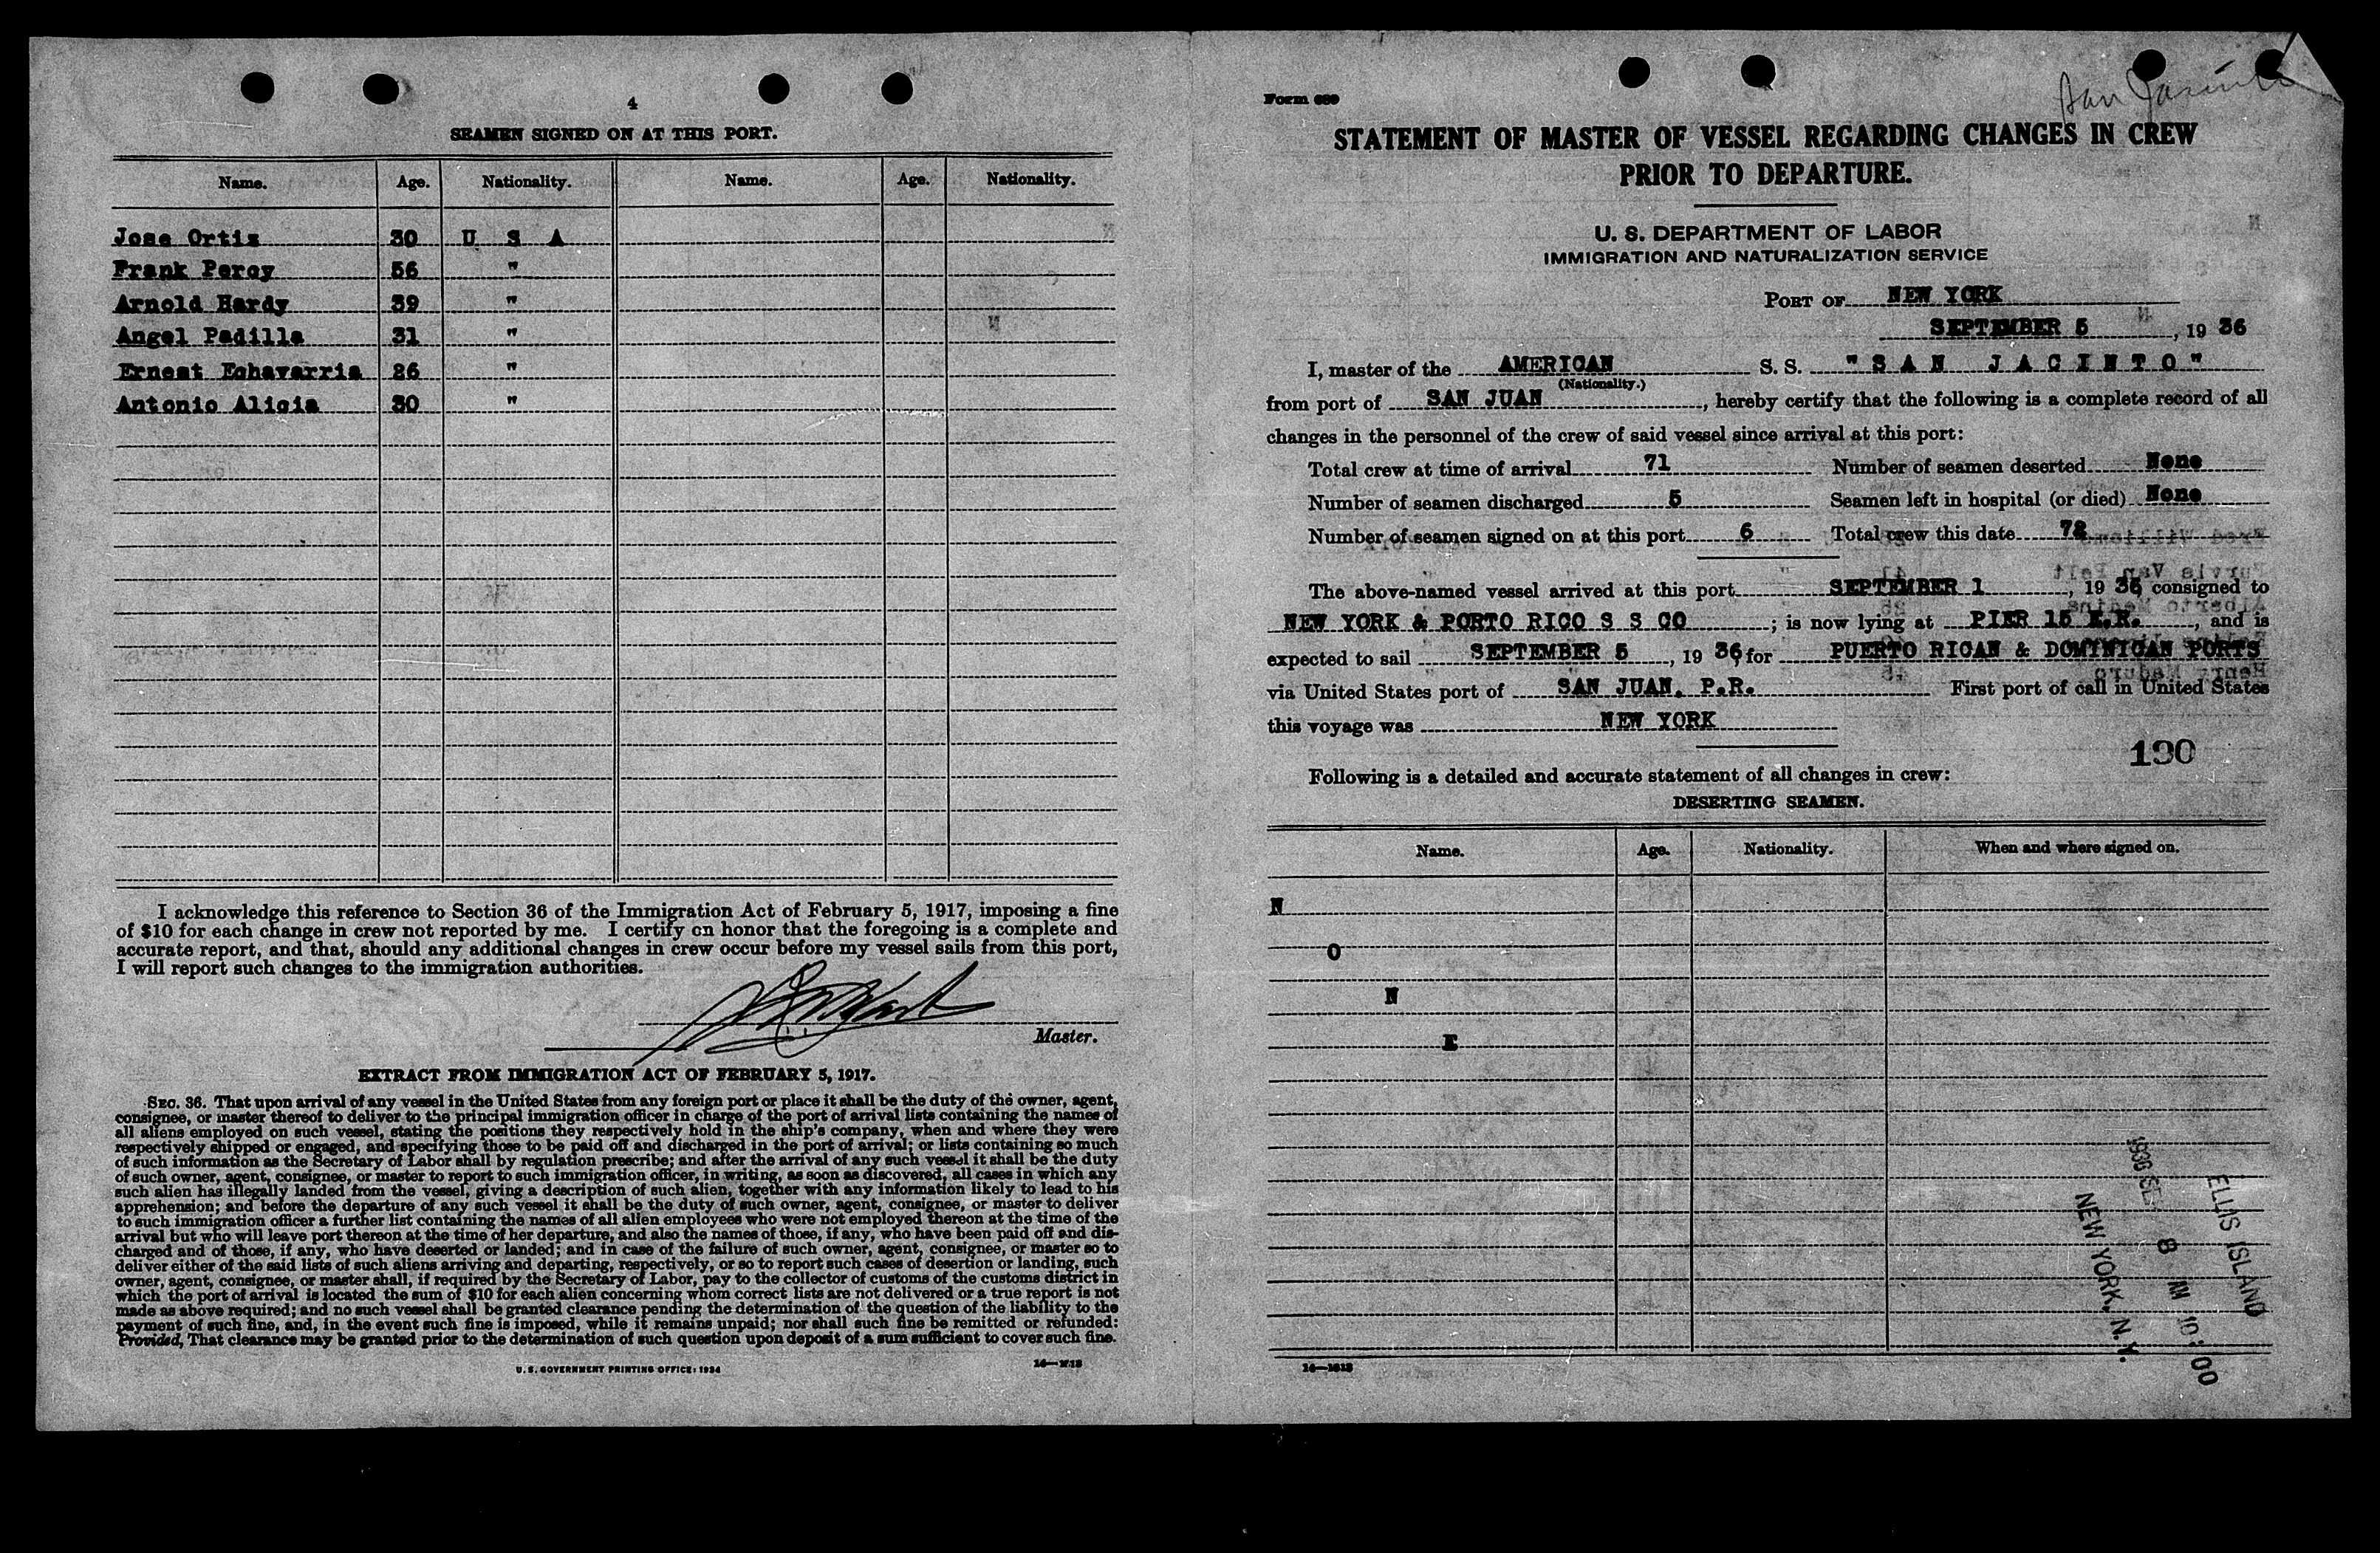 4
SEAMEN SIGNED ON AT THIS PORT.
Name. Age. Nationality. Name. Age. Nationality.
Jose Ortiz 30 U S A
Frank Percy 56 "
Arnold Hardy 39 "
Angel Padilla 31 "
Ernest Echavarria 26 "
Antonio Alicia 30 "
I acknowledge this reference to Section 36 of the Immigration Act of February 5, 1917, imposing a fine
of $10 for each change in crew not reported by me. I certify on honor that the foregoing is a complete and
accurate report, and that, should any additional changes in crew occur before my vessel sails from this port,
I will report such changes to the immigration authorities.
Master.
EXTRACT FROM IMMIGRATION ACT OF FEBRUARY 5, 1917.
SEC. 36. That upon arrival of any vessel in the United States from any foreign port or place it shall be the duty of the owner, agent,
consignee, or master thereof to deliver to the principal immigration officer in charge of the port of arrival lists containing the names of
all aliens employed on such vessel, stating the positions they respectively hold in the ship's company, when and where they were
respectively shipped or engaged, and specifying those to be paid off and discharged in the port of arrival; or lists containing so much
of such information as the Secretary of Labor shall by regulation prescribe; and after the arrival of any such vessel it shall be the duty
of such owner, agent, consignee, or master to report to such immigration officer, in writing, as soon as discovered, all cases in which any
such alien has illegally landed from the vessel, giving a description of such alien, together with any information likely to lead to his
apprehension; and before the departure of any such vessel it shall be the duty of such owner, agent, consignee, or master to deliver
to such immigration officer a further list containing the names of all alien employees who were not employed thereon at the time of the
arrival but who will leave port thereon at the time of her departure, and also the names of those, if any, who have been paid off and dis-
charged and of those, if any, who have deserted or landed; and in case of the failure of such owner, agent, consignee, or master so to
deliver either of the said lists of such aliens arriving and departing, respectively, or so to report such cases of desertion or landing, such
owner, agent, consignee, or master shall, if required by the Secretary of Labor, pay to the collector of customs of the customs district in
which the port of arrival is located the sum of $10 for each alien concerning whom correct lists are not delivered or a true report is not
made as above required; and no such vessel shall be granted clearance pending the determination of the question of the liability to the
payment of such fine, and, in the event such fine is imposed, while it remains unpaid; nor shall such fine be remitted or refunded:
Provided, That clearance may be granted prior to the determination of such question upon deposit of a sum sufficient to cover such fine.
U. S. GOVERNMENT PRINTING OFFICE: 1934
San Jacinto
Form 689
STATEMENT OF MASTER OF VESSEL REGARDING CHANGES IN CREW
PRIOR TO DEPARTURE.
U. S. DEPARTMENT OF LABOR
IMMIGRATION AND NATURALIZATION SERVICE
PORT OF NEW YORK
SEPTEMBER 5, 19 36
I, master of the AMERICAN S. S. "S A N J A C I N T O"
(Nationality.)
from port of SAN JUAN, hereby certify that the following is a complete record of all
changes in the personnel of the crew of said vessel since arrival at this port:
Total crew at time of arrival 71 Number of seamen deserted None
Number of seamen discharged 5 Seamen left in hospital (or died) None
Number of seamen signed on at this port 6 Total crew this date 72
The above-named vessel arrived at this port SEPTEMBER 1, 19 36 consigned to
NEW YORK & PORTO RICO S S CO; is now lying at PIER 15 E.R., and is
expected to sail SEPTEMBER 5, 19 36, for PUERTO RICAN & DOMINICAN PORTS
via United States port of SAN JUAN, P.R. First port of call in United States
this voyage was NEW YORK
190
Following is a detailed and accurate statement of all changes in crew:
DESERTING SEAMEN.
Name. Age. Nationality. When and where signed on.
N
O
N
E
ELLIS ISLAND
1936 SE 8 AM 10:00
NEW YORK, N.Y.
16—1618